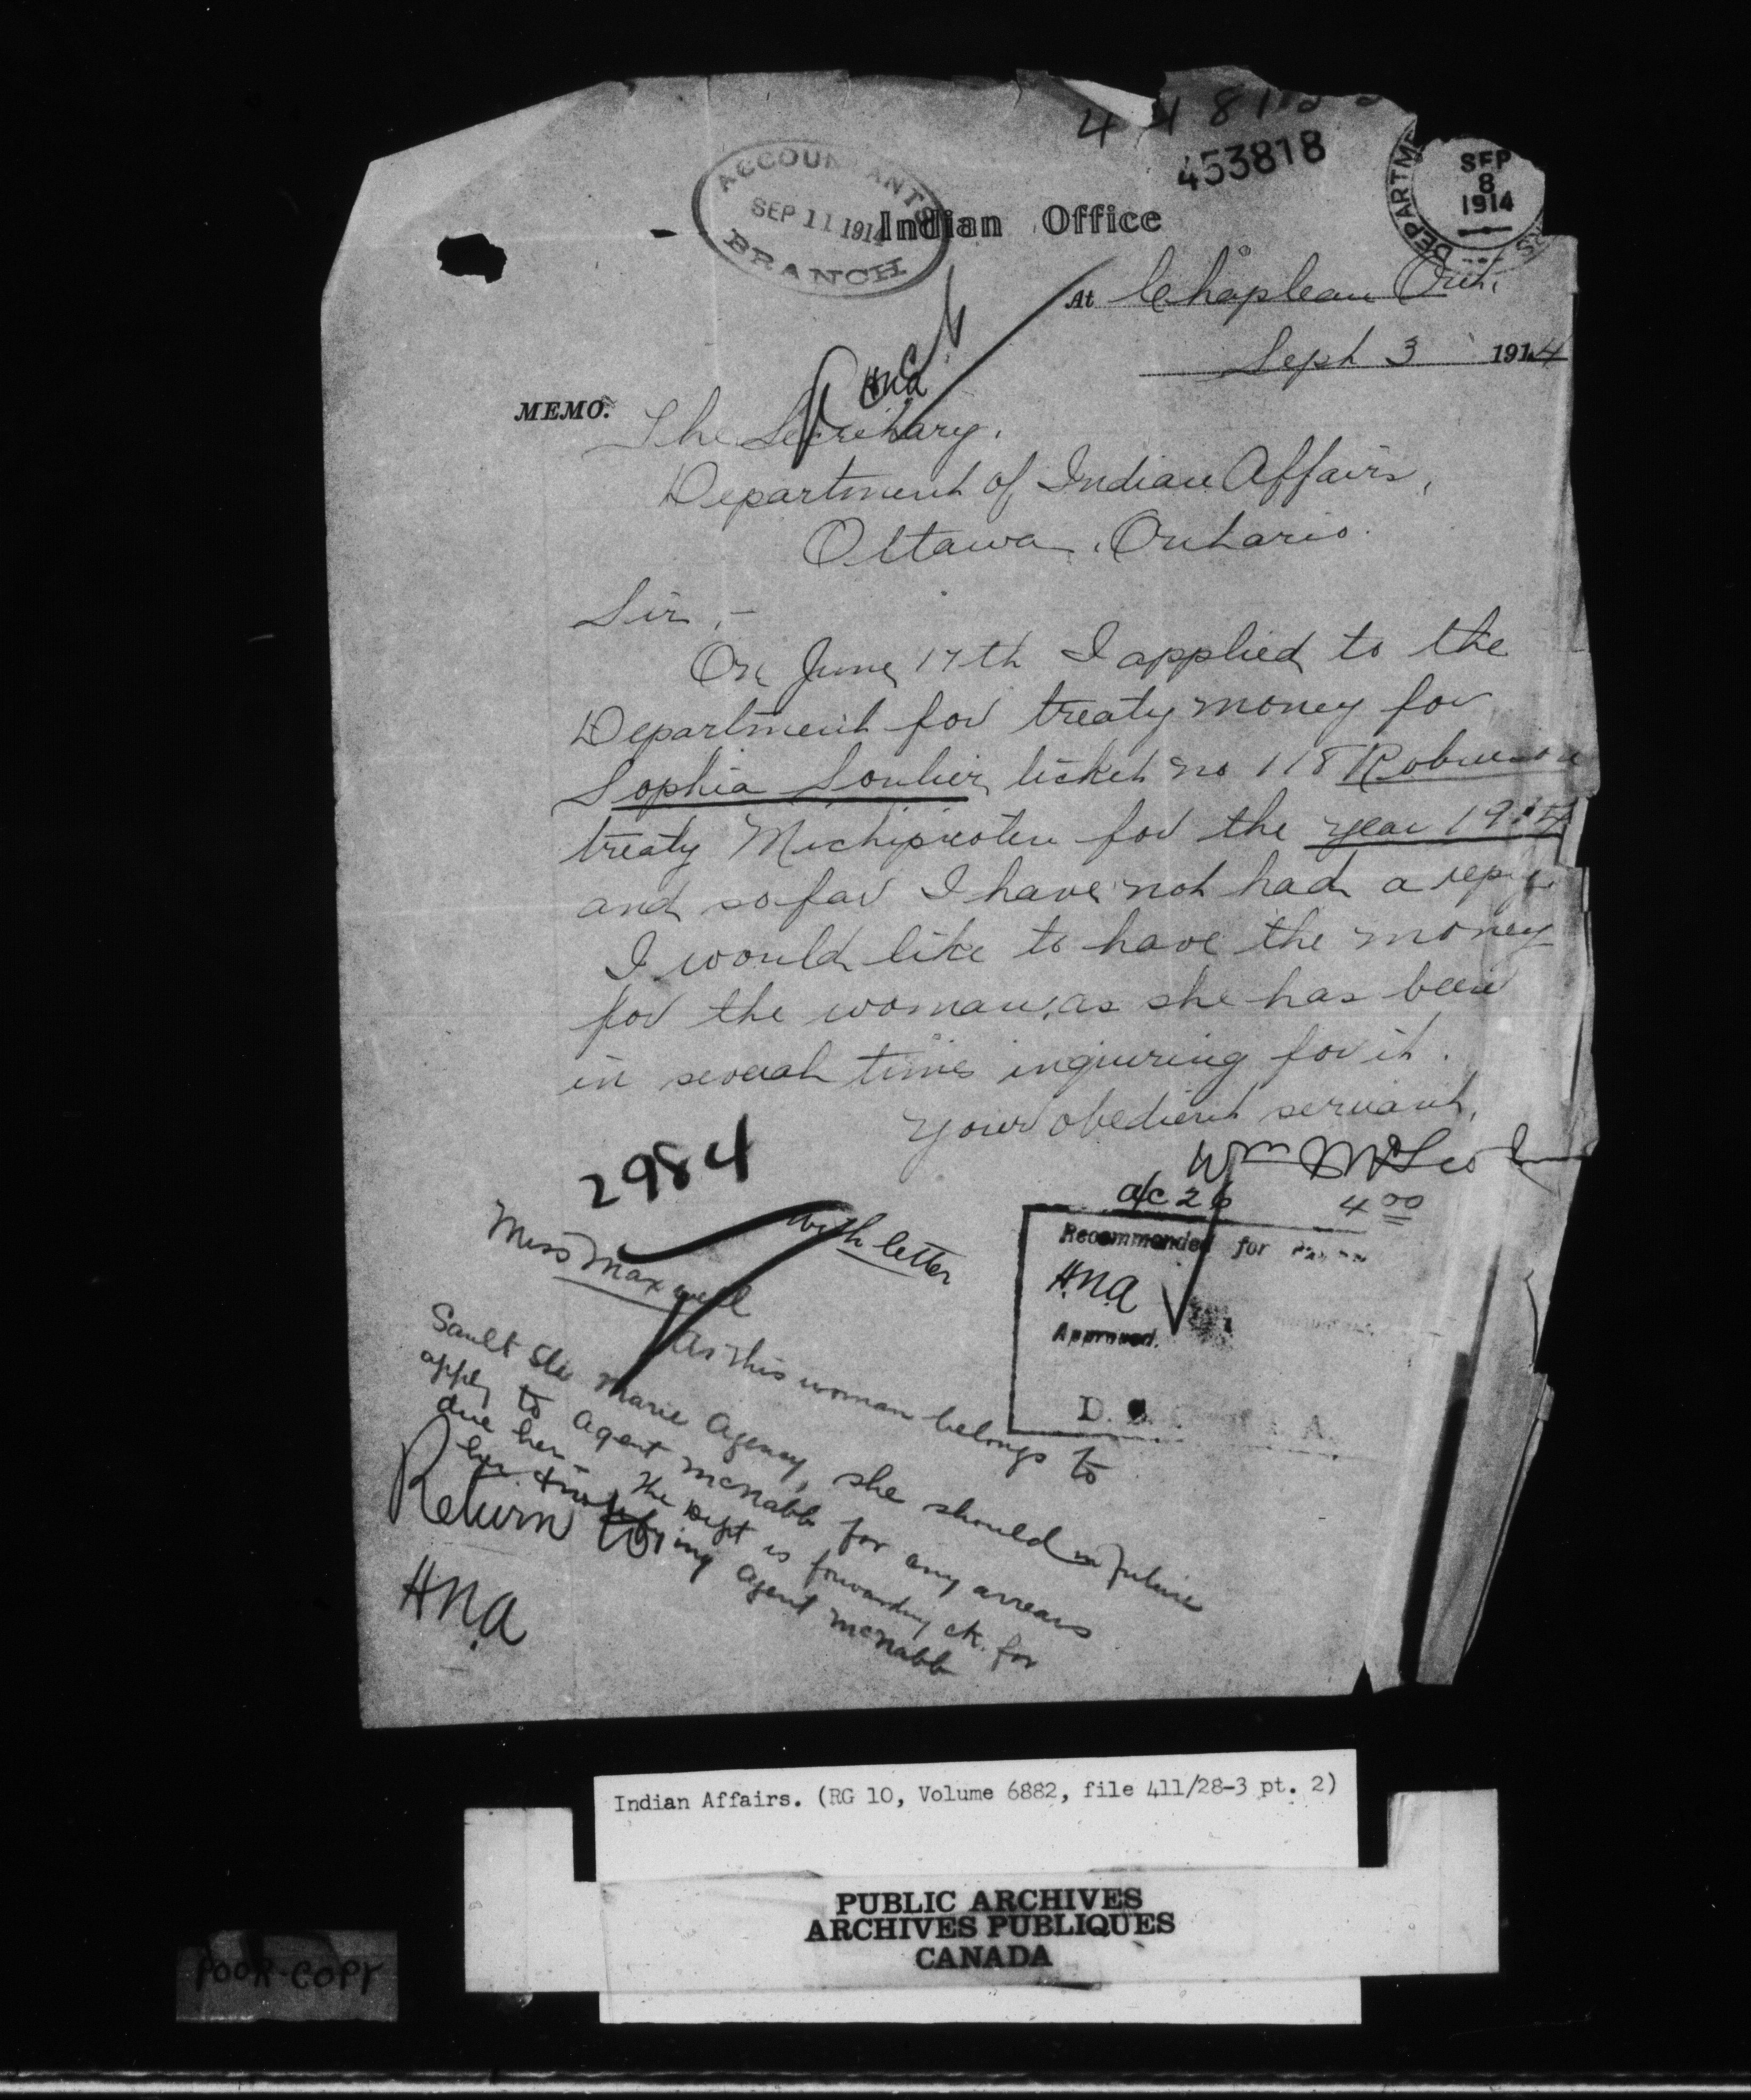 453818
ACCOUNTANTS
SEP 11 1914
BRANCH
SEP
8
1914
Indian Office
At Chapleau Ont.
Sept 3 1914
MEMO.
The Secretary.
Department of Indian Affairs,
Ottawa, Ontario.
Sir,-
On June 17th I applied to the
Department for treaty money for
Sophia Soulier ticket no 118 Robinson
treaty Michipicoten for the year 1914
and so far I have not had a reply.
I would like to have the money
for the woman, as she has been
in several times inquiring for it.
Your obedient servant,
Wm McLeod
2984
a/c 26 4 00
Recommended for
H.N.A
Approved.
D.
with letter
Miss Maxwell
As this woman belongs to
Sault Ste Marie Agency, she should in future
apply to Agent McNabb for any arrears
due her. The Dept is forwarding ck. for
her & notifying Agent McNabb
Return to
HNA
Indian Affairs. (RG 10, Volume 6882, file 411/28-3 pt. 2)
PUBLIC ARCHIVES
ARCHIVES PUBLIQUES
CANADA
POOR COPY